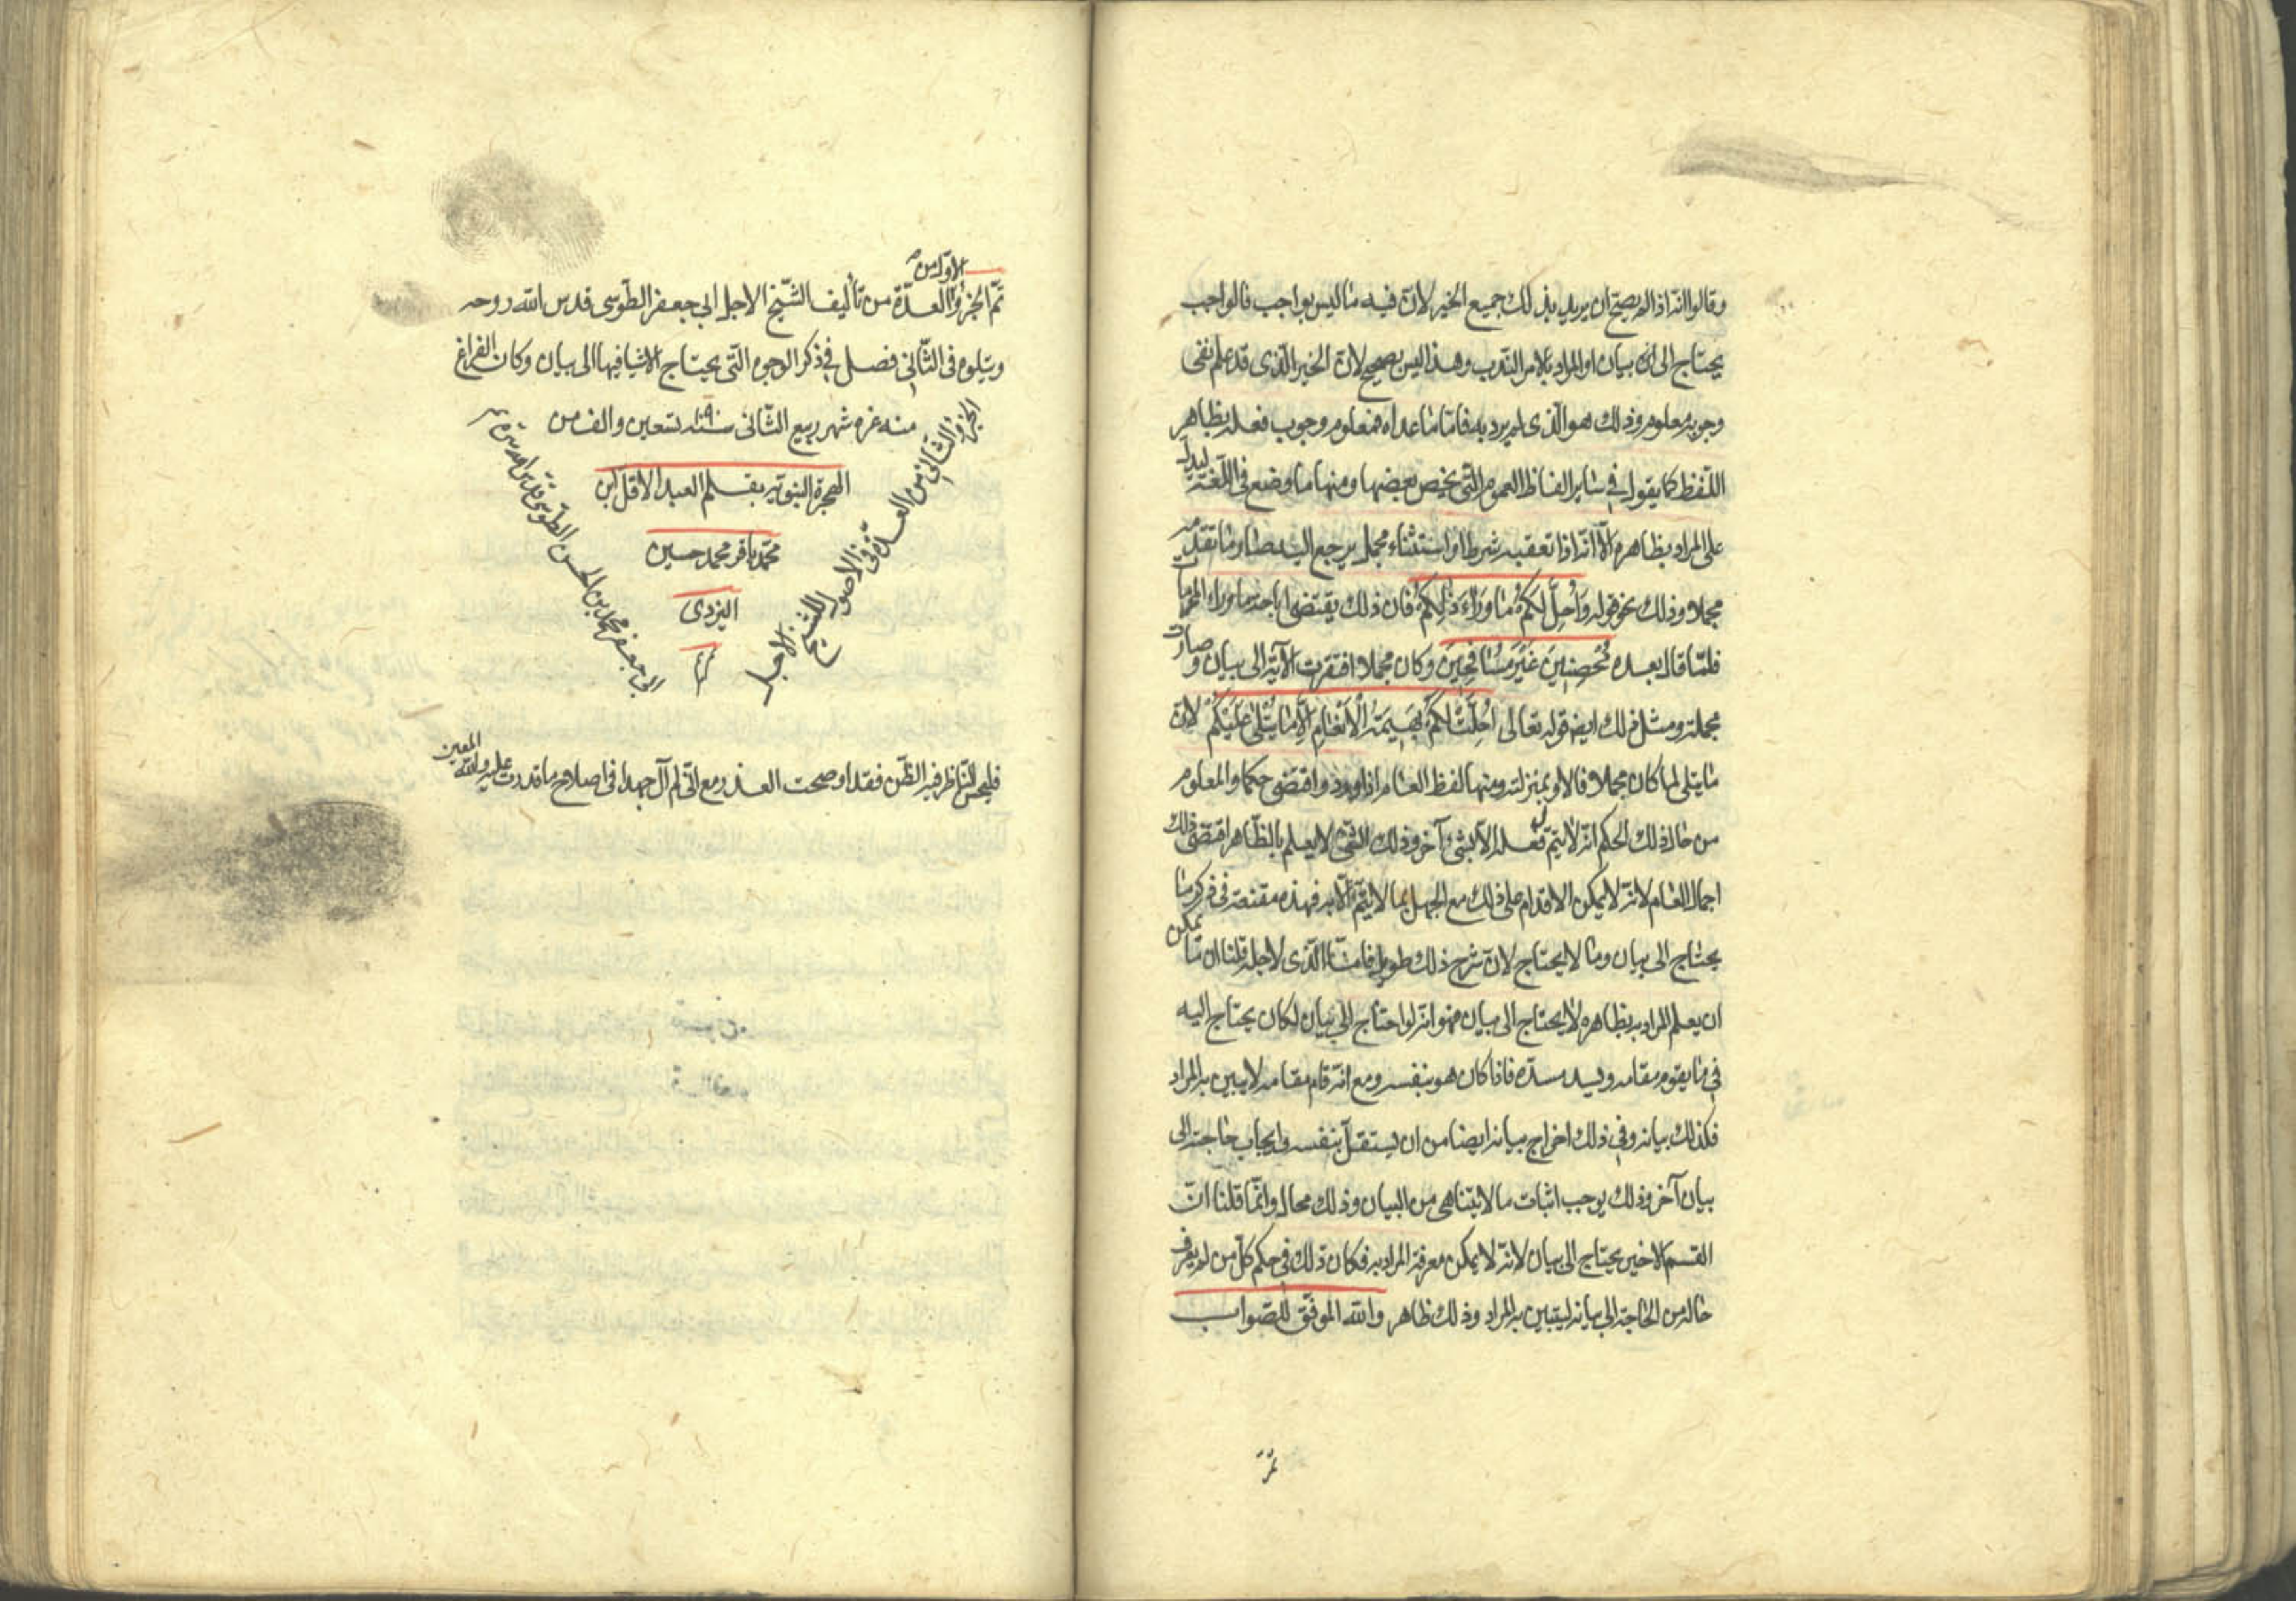 وقالوا انه اذا لم يصح ان يريد بذلك جميع الخير لان فيه ما ليس بواجب فالواجب
يحتاج الى بيان او المراد بالامر الندب وهذا ليس بصحيح لان الخير الذى قد علم نفى
وجوبه معلوم وذلك هو الذى لم يرد به فاما ما عداه فمعلوم وجوب فعله بظاهر
اللفظ كما يقول فى ساير الفاظ العموم التى يخص بعضها ومنها ما وضع فى اللغة ليدل
على المراد بظاهره الا انه اذا تعقبه شرط او استثناء مجمل يرجع اليه صار ما تقدمه
مجملا وذلك نحو قوله وَاُحِلَّ لَكُمْ مٰا وَرٰاءَ ذٰلِكُمْ فان ذلك يقتضى اباحة ما وراء المحرمات
فلما قال بعده مُحْصِنينَ غَيْرَ مُسٰافِحِينَ وكان مجملا افتقرت الآية الى بيان وصارت
مجملة ومثل ذلك ايض قوله تعالى اُحِلَّتْ لَكُمْ بَهيمَةُ الْاَنْعٰامِ اِلّٰا مٰا يُتْلىٰ عَلَيْكُمْ لان
ما يتلى لما كان مجملا فالاول بمنزلته ومنها لفظ العام اذا ورد واقتضى حكما والمعلوم
من حال ذلك الحكم انه لا يتم فعله الا بشئ آخر وذلك الشئ لا يعلم بالظاهر اقتضى ذلك
اجمال العام لانه لا يمكن الاقدام على ذلك مع الجهل بما لا يتم الا به فهذه مقنعة فى ذكر ما
يحتاج الى بيان وما لا يحتاج لان شرح ذلك طويل فاما الذى لاجله قلنا ان ما يمكن
ان يعلم المراد به بظاهره لا يحتاج الى بيان فهو انه لو احتاج الى بيان لكان يحتاج اليه
فى ما يقوم مقامه ويسد مسده فاذا كان هو بنفسه ومع انه قام مقامه لا يبين به المراد
فكذلك بيانه وفى ذلك اخراج بيانه ايضا من ان يستقل بنفسه وايجاب حاجته الى
بيان آخر وذلك يوجب اثبات ما لا يتناهى من البيان وذلك محال وانما قلنا ان
القسم الاخير يحتاج الى بيان لانه لا يمكن معرفة المراد به فكان ذلك فى حكم كل من لم يعرف
حاله من الحاجة الى بيانه ليتبين به المراد وذلك ظاهر والله الموفق للصواب
تم الجزء الاول من العدة من تأليف الشيخ الاجل ابى جعفر الطوسى قدس الله روحه
ويتلوه فى الثانى فصل فى ذكر الوجوه التى يحتاج الاشيا فيها الى بيان وكان الفراغ
منه غره شهر ربيع الثانى سنة ١٠٩٠ تسعين والف من
الهجرة النبوية بقلم العبد الاقل ابن
محمد باقر محمد حسين
اليزدى
الجزء الثانى من العدة فى الاصول للشيخ الاجل
ابى جعفر محمد بن الحسن الطوسى قدس الله سره
فليحسن الناظر فيه الظن فقد اوضحت العذر مع انى لم آل جهدا فى اصلاح ما قدرت عليه والله المعين